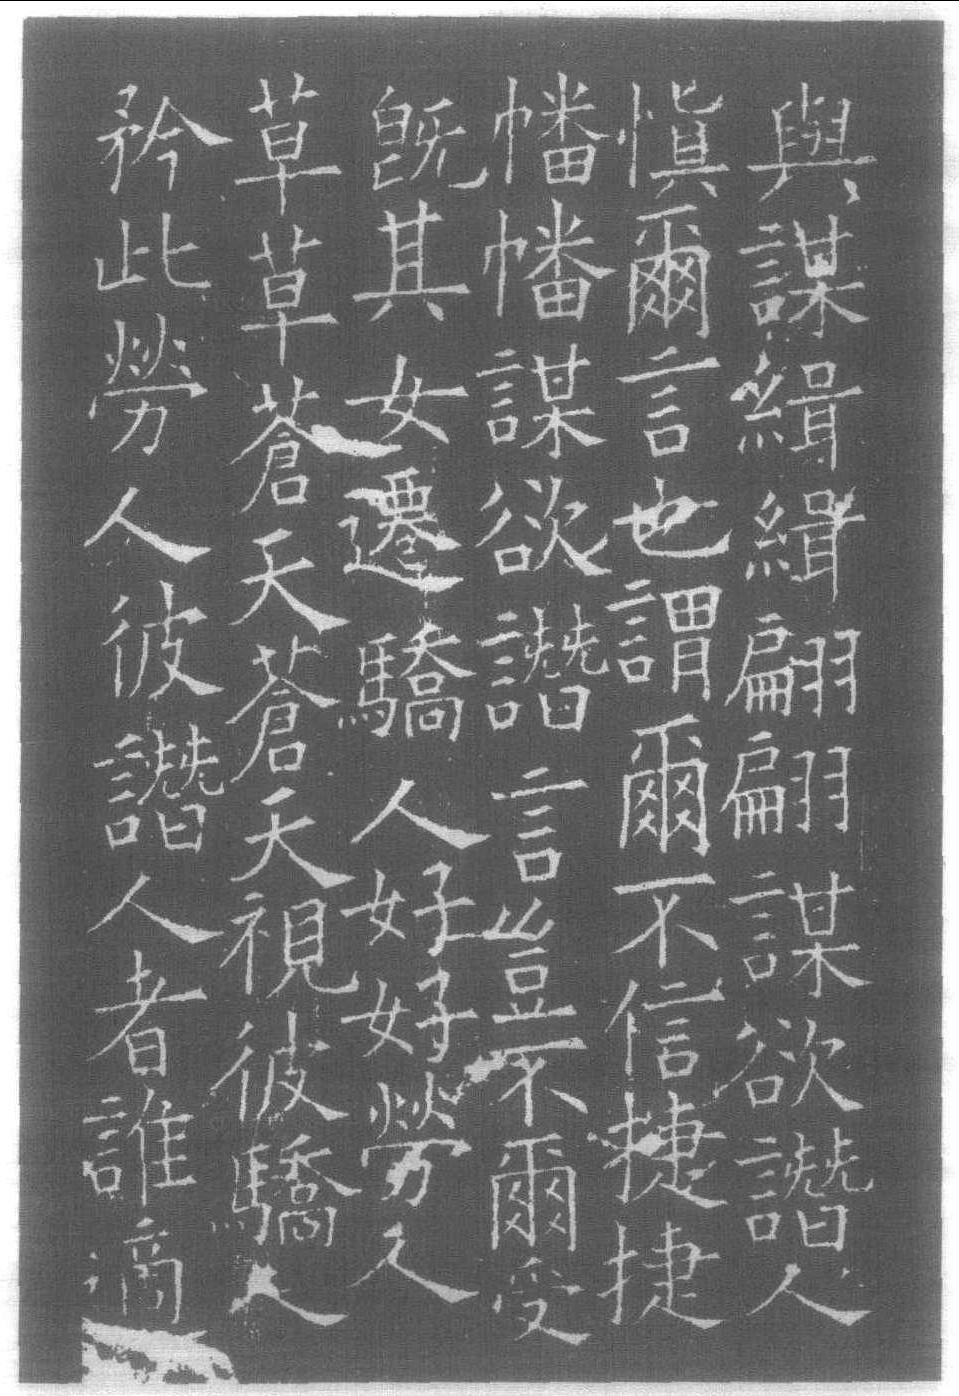 與謀緝緝翩翩謀欲譖人
慎爾言也謂爾不信捷捷
幡幡謀欲譖言豈不爾受
既其女遷驕人好好勞人
草草蒼天蒼天視彼驕人
矜此勞人彼譖人者誰適